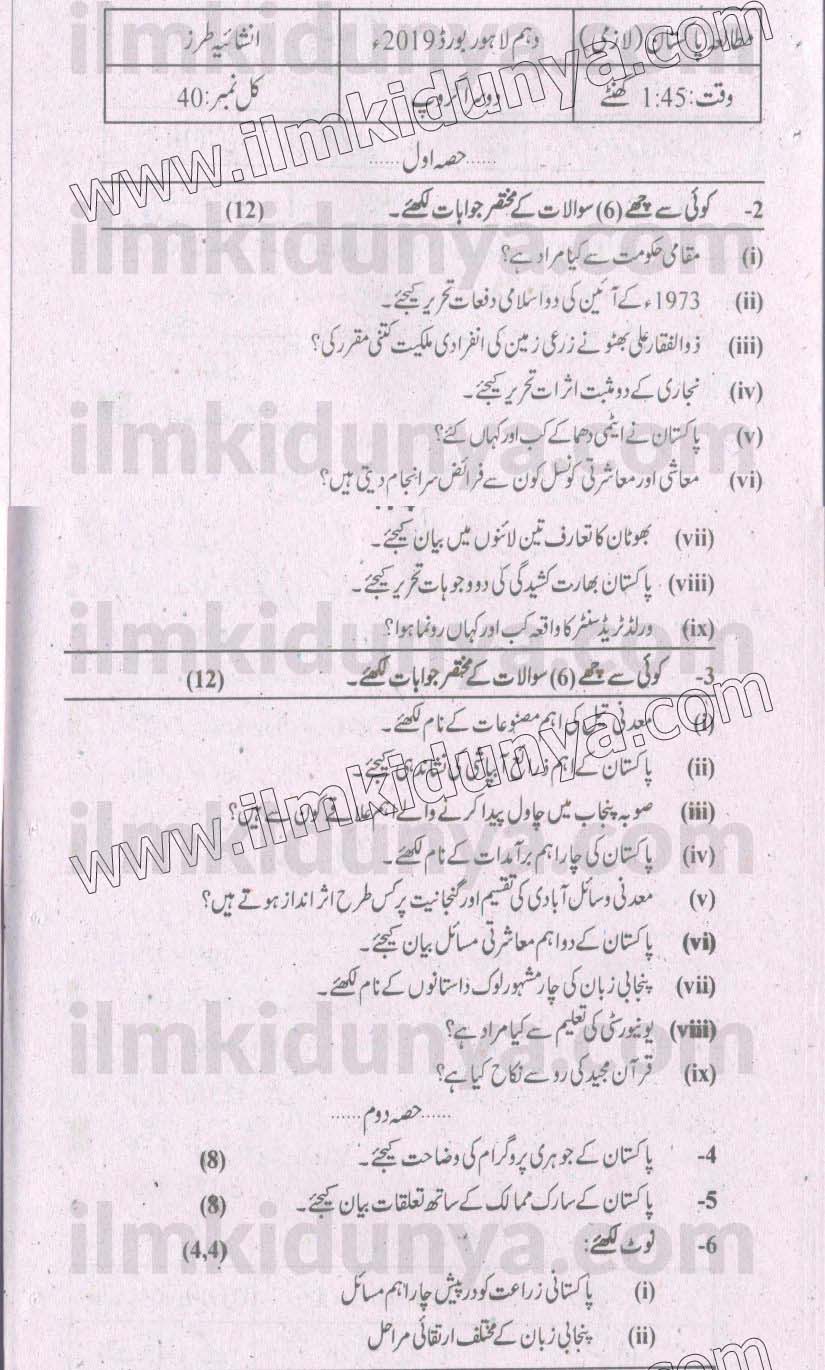 مطالعہ پاکستان (لازمی) دہم لاہور بورڈ 2019ء انشائیہ طرز
وقت: 1:45 گھنٹے دوسرا گروپ کل نمبر: 40
www.ilmkidunya.com
......حصہ اول......
2- کوئی سے چھے (6) سوالات کے مختصر جوابات لکھئے۔ (12)
(i) مقامی حکومت سے کیا مراد ہے؟
(ii) 1973ء کے آئین کی دو اسلامی دفعات تحریر کیجئے۔
(iii) ذوالفقار علی بھٹو نے زرعی زمین کی انفرادی ملکیت کتنی مقرر کی؟
(iv) نجاری کے دو مثبت اثرات تحریر کیجئے۔
(v) پاکستان نے ایٹمی دھماکے کب اور کہاں کئے؟
(vi) معاشی اور معاشرتی کونسل کون سے فرائض سرانجام دیتی ہیں؟
(vii) بھوٹان کا تعارف تین لائنوں میں بیان کیجئے۔
(viii) پاکستان بھارت کشیدگی کی دو وجوہات تحریر کیجئے۔
(ix) ورلڈ ٹریڈ سنٹر کا واقعہ کب اور کہاں رونما ہوا؟
3- کوئی سے چھے (6) سوالات کے مختصر جوابات لکھئے۔ (12)
(i) معدنی تیل کی اہم مصنوعات کے نام لکھئے۔
(ii) پاکستان کے اہم ذرائع آبپاشی کی نشاندہی کیجئے۔
(iii) صوبہ پنجاب میں چاول پیدا کرنے والے اہم علاقے کون سے ہیں؟
(iv) پاکستان کی چار اہم برآمدات کے نام لکھئے۔
(v) معدنی وسائل آبادی کی تقسیم اور گنجانیت پر کس طرح اثر انداز ہوتے ہیں؟
(vi) پاکستان کے دو اہم معاشرتی مسائل بیان کیجئے۔
(vii) پنجابی زبان کی چار مشہور لوک داستانوں کے نام لکھئے۔
(viii) یونیورسٹی کی تعلیم سے کیا مراد ہے؟
(ix) قرآن مجید کی رو سے نکاح کیا ہے؟
......حصہ دوم......
4- پاکستان کے جوہری پروگرام کی وضاحت کیجئے۔ (8)
5- پاکستان کے سارک ممالک کے ساتھ تعلقات بیان کیجئے۔ (8)
6- نوٹ لکھئے: (4,4)
(i) پاکستانی زراعت کو درپیش چار اہم مسائل
(ii) پنجابی زبان کے مختلف ارتقائی مراحل